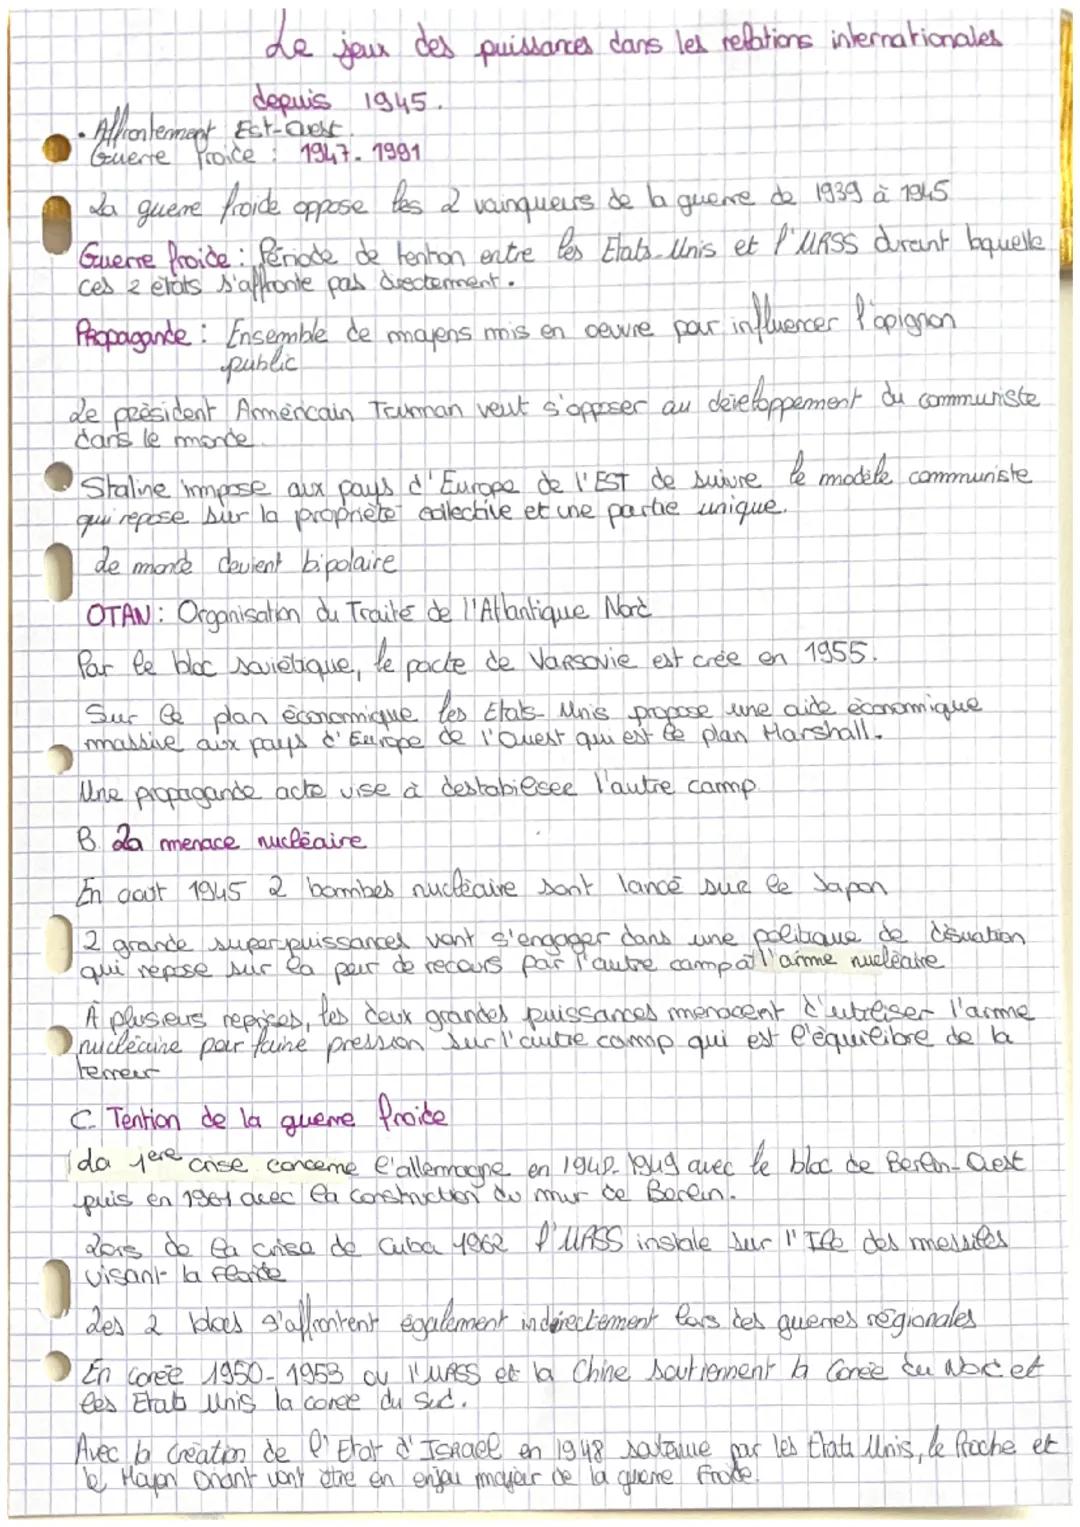 Le jeux des puissances dans les relations internationales
depuis 1945.
• Affrontement Est-Ouest.
Guerre froide : 1947-1991
La guerre froide oppose les 2 vainqueurs de la guerre de 1939 à 1945
Guerre froide : Période de tention entre les Etats-Unis et l'URSS durant laquelle
ces 2 états s'affronte pas directement.
Propagande : Ensemble de moyens mis en oeuvre pour influencer l'opignon
public
Le président Américain Truman veut s'opposer au développement du communiste
dans le monde.
Staline impose aux pays d'Europe de l'EST de suivre le modèle communiste
qui repose sur la propriété collective et une partie unique.
Le monde devient bipolaire
OTAN : Organisation du Traité de l'Atlantique Nord
Par le bloc soviétique, le pacte de Varsovie est crée en 1955.
Sur le plan économique les Etats-Unis propose une aide économique
massive aux pays d'Europe de l'Ouest qui est le plan Marshall.
Une propagande acte vise à destabilisee l'autre camp
B. La menace nucléaire
En aout 1945 2 bombes nucléaire sont lancé sur le Japon
2 grande superpuissances vont s'engager dans une politique de disuation
qui repose sur la peur de recours par l'autre camp à l'arme nucléaire
À plusieurs reprises, les deux grandes puissances menacent d'utreliser l'arme
nucléaire pour faire pression sur l'autre camp qui est l'équilibre de la
terreur
C. Tention de la guerre froide
La 1ere crise concerne l'allemagne en 1948-1949 avec le bloc de Berlin-Ouest
puis en 1961 avec la construction du mur de Berlin.
Lors de la crise de Cuba 1962 l'URSS instale sur l'Ile des messiles
visant la Floride
Les 2 blocs s'affrontent également indirectement lors des guerres régionales
En Corée 1950-1953 ou l'URSS et la Chine soutiennent la Corée du Nord et
les Etats Unis la corée du Sud.
Avec la création de l'Etat d'ISRAEL en 1948 soutenue par les Etats Unis, le Proche et
le Moyen Orient vont être en enjeu majeur de la guerre froide.